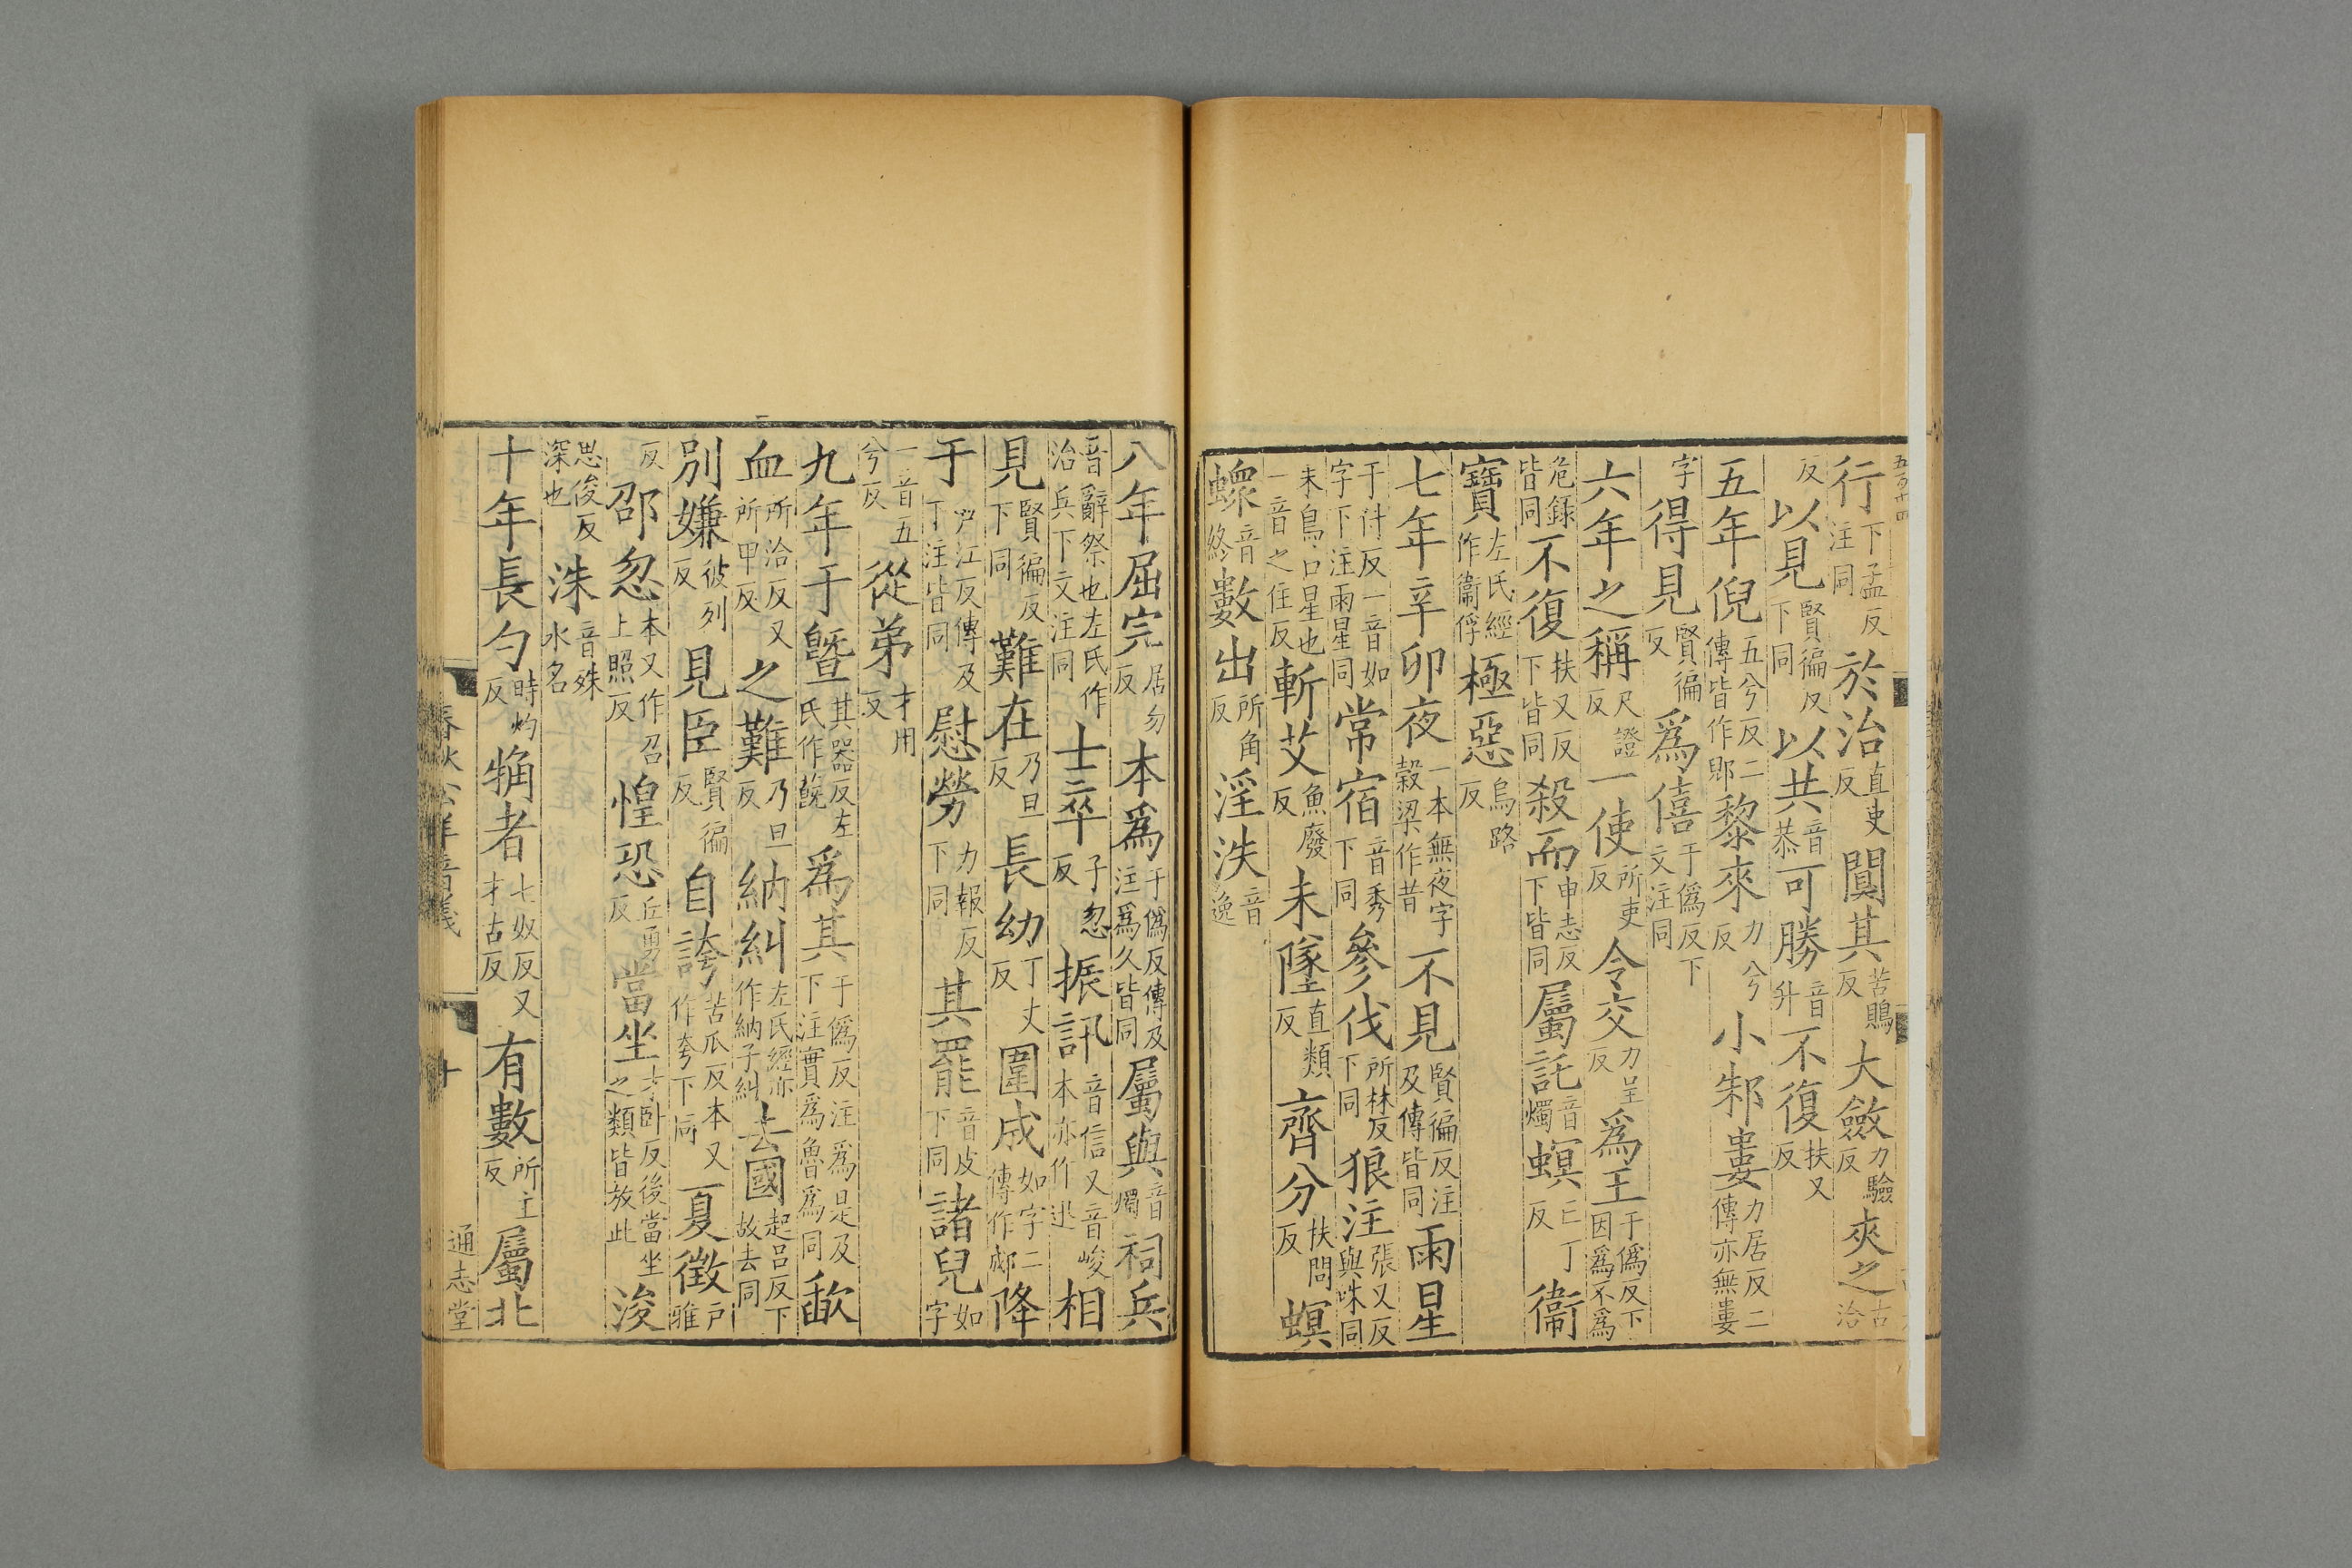 五百十四
行下孟反注同於治直吏反闃其苦鶪反大斂力驗反夾之古洽
反以見賢徧反下同以共音恭可勝音升不復扶又反
五年倪五兮反二傳皆作郳黎來力兮反小邾婁力居反二傳亦無婁
字得見賢徧反爲僖于僞反下文注同
六年之稱尺證反一使所吏反令交力呈反爲王于僞反下因爲不爲
危錄皆同不復扶又反下皆同殺而申志反下皆同屬託音燭螟亡丁反衞
寶左氏經作衞俘極惡烏路反
七年辛卯夜一本無夜字榖梁作昔不見賢徧反注及傳皆同雨星
于付反一音如字下注雨星同常宿音秀下同參伐所林反下同狼注張又反與咮同
朱鳥口星也一音之住反斬艾魚廢反未墜直類反齊分扶問反螟
螽音終數出所角反淫泆音逸
八年屈完居勿反本爲于僞反傳及注爲久皆同屬與音燭祠兵
音辭祭也左氏作治兵下文注同士卒子忽反振訊音信又音峻本亦作迅相
見賢徧反下同難在乃旦反長幼丁丈反圍成如字二傳作郕降
于戸江反傳及下注皆同慰勞力報反下同其罷音皮下同諸兒如字
一音五兮反從弟才用反
九年于曁其器反左氏作蔇爲其于僞反注爲是及下注實爲魯爲同歃
血所洽反又所甲反之難乃旦反納糾左氏經亦作納子糾去國起呂反下故去同
別嫌彼列反見臣賢徧反自誇苦瓜反本又作夸下同夏徵戸雅
反邵忽本又作召上照反惶恐丘勇反當坐才臥反後當坐之類皆放此浚
思俊反深也洙音殊水名
十年長勺時灼反觕者七奴反又才古反有數所主反屬北
春秋公羊音義 十 通志堂